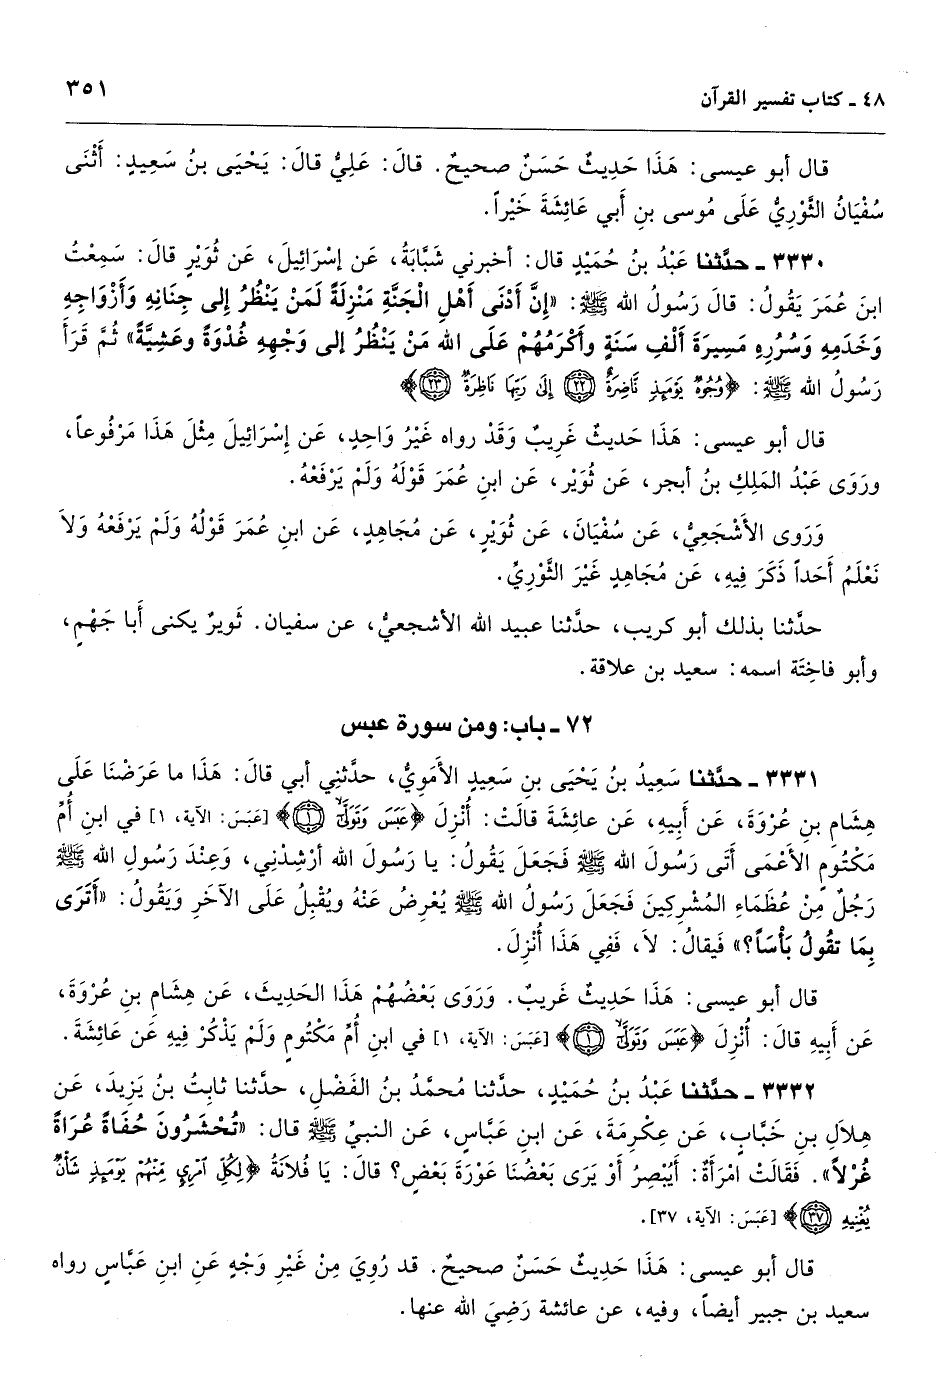 ٤٨ ـ كتاب تفسير القرآن ٣٥١
قال أبو عيسى: هَذَا حَدِيثٌ حَسَنٌ صحيحٌ. قالَ: عَلِيُّ قالَ: يَحْيَى بنُ سَعِيدٍ: أَثْنَى
سُفْيَانُ الثَّوْرِيُّ عَلَى مُوسى بنِ أَبي عَائِشَةَ خَيْراً.
٣٣٣٠ ـ حدَّثنا عَبْدُ بنُ حُمَيْدٍ قال: أخبرني شَبَّابَةُ، عَن إِسْرَائِيلَ، عَن ثُوَيْرٍ قالَ: سَمِعْتُ
ابنَ عُمَرَ يَقُولُ: قالَ رَسُولُ الله ﷺ: «إِنَّ أَدْنَى أَهْلِ الْجَنَّةِ مَنْزِلَةً لَمَنْ يَنْظُرُ إلى جِنَانِهِ وَأَزْوَاجِهِ
وَخَدَمِهِ وَسُرُرِهِ مَسِيرَةَ أَلْفِ سَنَةٍ وأَكْرَمُهُمْ عَلَى الله مَنْ يَنْظُرُ إلى وَجْهِهِ غُدْوَةً وعَشِيَّةً» ثُمَّ قَرَأَ
رَسُولُ الله ﷺ: ﴿وُجُوهٌ يَوْمَئِذٍ نَّاضِرَةٌ ﴿٢٢﴾ إِلَى رَبِّهَا نَاظِرَةٌ ﴿٢٣﴾﴾
قال أبو عيسى: هَذَا حَديثٌ غَرِيبٌ وَقَدْ رواه غَيْرُ وَاحِدٍ، عَن إِسْرَائِيلَ مِثْلَ هَذَا مَرْفُوعاً،
ورَوَى عَبْدُ المَلِكِ بنُ أبجر، عَن ثُوَيْر، عَن ابنِ عُمَرَ قَوْلَهُ وَلَمْ يَرْفَعْهُ.
وَرَوى الأَشْجَعِيُّ، عَن سُفْيَانَ، عَن ثُوَيْرٍ، عَن مُجَاهِدٍ، عَن ابنِ عُمَرَ قَوْلُهُ وَلَمْ يَرْفَعْهُ وَلاَ
نَعْلَمُ أَحَداً ذَكَرَ فِيهِ، عَن مُجَاهِدٍ غَيْرَ الثَّوْرِيِّ.
حدَّثنا بذلك أبو كريب، حدَّثنا عبيد الله الأشجعيُّ، عن سفيان. ثَويرٌ يكنى أَبا جَهْمٍ،
وأبو فاخِتَة اسمه: سعيد بن علاقة.
٧٢ ـ باب: ومن سورة عبس
٣٣٣١ ـ حدَّثنا سَعِيدُ بنُ يَحْيَى بنِ سَعِيدٍ الأَمَوِيُّ، حدَّثنِي أبي قالَ: هَذَا ما عَرَضْنَا عَلَى
هِشَامِ بنِ عُرْوَةَ، عَن أَبِيهِ، عَن عائِشَةَ قالَتْ: أُنْزِلَ ﴿عَبَسَ وَتَوَلَّىٰ ﴿١﴾﴾ [عَبَسَ: الآية، ١] في ابنِ أُمِّ
مَكْتُومٍ الأَعْمَى أَتَى رَسُولَ الله ﷺ فَجَعَلَ يَقُولُ: يا رَسُولَ الله أَرْشِدْنِي، وَعِنْدَ رَسُولِ الله ﷺ
رَجُلٌ مِنْ عُظَمَاءِ المُشْرِكِينَ فَجَعَلَ رَسُولُ الله ﷺ يُعْرِضُ عَنْهُ ويُقْبِلُ عَلَى الآخَرِ وَيَقُولُ: «أَتَرَى
بِمَا تقُولُ بَأْسَاً؟» فَيقالُ: لاَ، فَفِي هَذَا أُنْزِلَ.
قال أبو عيسى: هَذَا حَدِيثٌ غَرِيبٌ. وَرَوَى بَعْضُهُمْ هَذَا الحَدِيثَ، عَن هِشَامِ بنِ عُرْوَةَ،
عَن أَبِيهِ قالَ: أُنْزِلَ ﴿عَبَسَ وَتَوَلَّىٰ ﴿١﴾﴾ [عَبَسَ: الآية، ١] في ابنِ أُمِّ مَكْتُومٍ وَلَمْ يَذْكُرْ فِيهِ عَن عَائِشَةَ.
٣٣٣٢ ـ حدَّثنا عَبْدُ بنُ حُمَيْدٍ، حدَّثنا مُحمَّدُ بنُ الفَضْلِ، حدَّثنا ثابتُ بنُ يَزِيدَ، عَن
هِلاَلِ بنِ خَبَّابٍ، عَن عِكْرِمَةَ، عَن ابنِ عَبَّاسٍ، عَن النبيِّ ﷺ قال: «تُحْشَرُونَ حُفَاةً عُرَاةً
غُرْلاً». فَقَالَتْ امْرَأَةٌ: أَيُبْصِرُ أَوْ يَرَى بَعْضُنَا عَوْرَةَ بَعْضٍ؟ قالَ: يَا فُلاَنَةُ ﴿لِكُلِّ امْرِيٍٕ مِّنْهُمْ يَوْمَئِذٍ شَأْنٌ
يُغْنِيهِ ﴿٣٧﴾﴾ [عَبَسَ: الآية، ٣٧].
قال أبو عيسى: هَذَا حَدِيثٌ حَسَنٌ صحيحٌ. قد رُوِيَ مِنْ غَيْرِ وَجْهٍ عَن ابنِ عَبَّاسٍ رواه
سعيد بن جبير أيضاً، وفيه، عن عائشة رَضِيَ الله عنها.